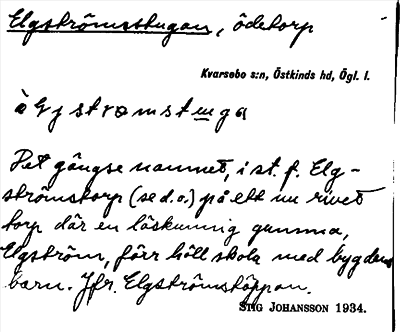 Elgströmsstugan, ödetorp
Kvarsebo s:n, Östkinds hd, Ögl. l.
Det gängse namnet, i st. f. Elg-
strömstorp (se d.o.) på ett nu rivet
torp där en läskunnig gumma,
Elgström, förr höll skola med bygdens
barn. Jfr. Elgströmstäppan.
STIG JOHANSSON 1934.